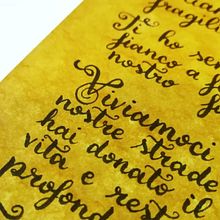 fragili
Ti ho sen
fianco a f
nostro
Viviamoci
nostre strade
hai donato il
vita e rest
profond